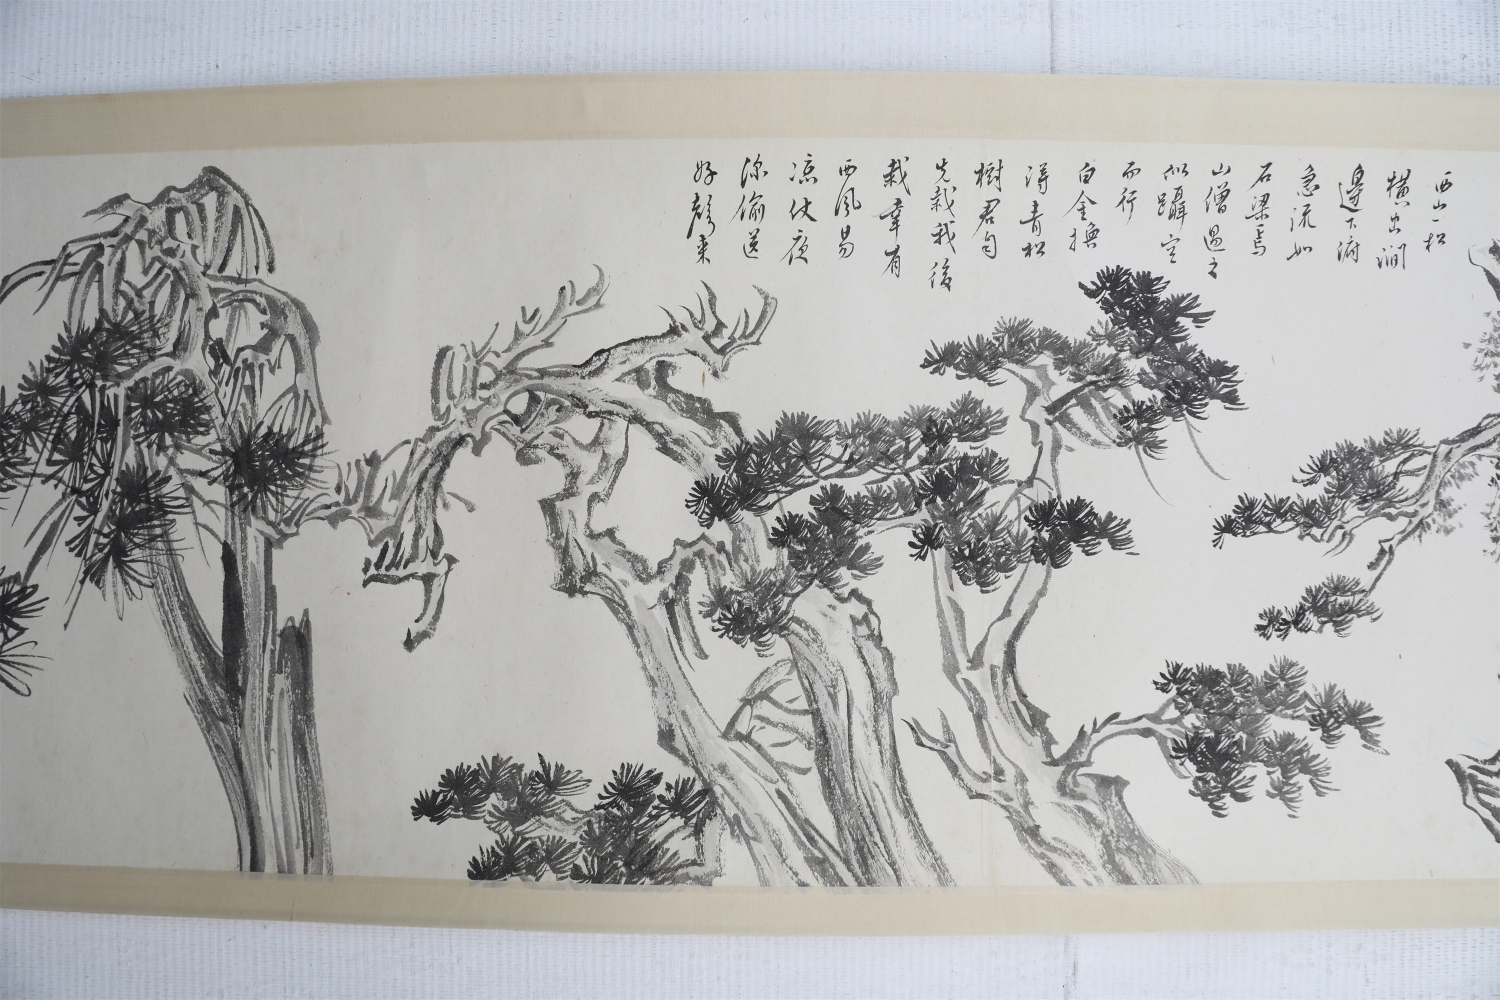 西山一松
橫出澗
邊下俯
急流如
石梁焉
山僧過之
似躡空
而行
白金換
得青松
樹君
先栽我
栽幸有
西風易
凴仗夜
深偷送
好聲來